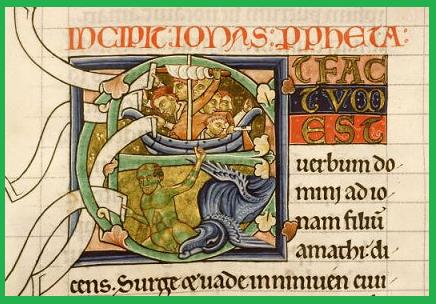 INCIPIT: IONAS: PPHETA:
ETFAC
TVM
EST
uerbum do
mini ad io
nam filiū
amathi di
cens. Surge & uade in niniuen ciui